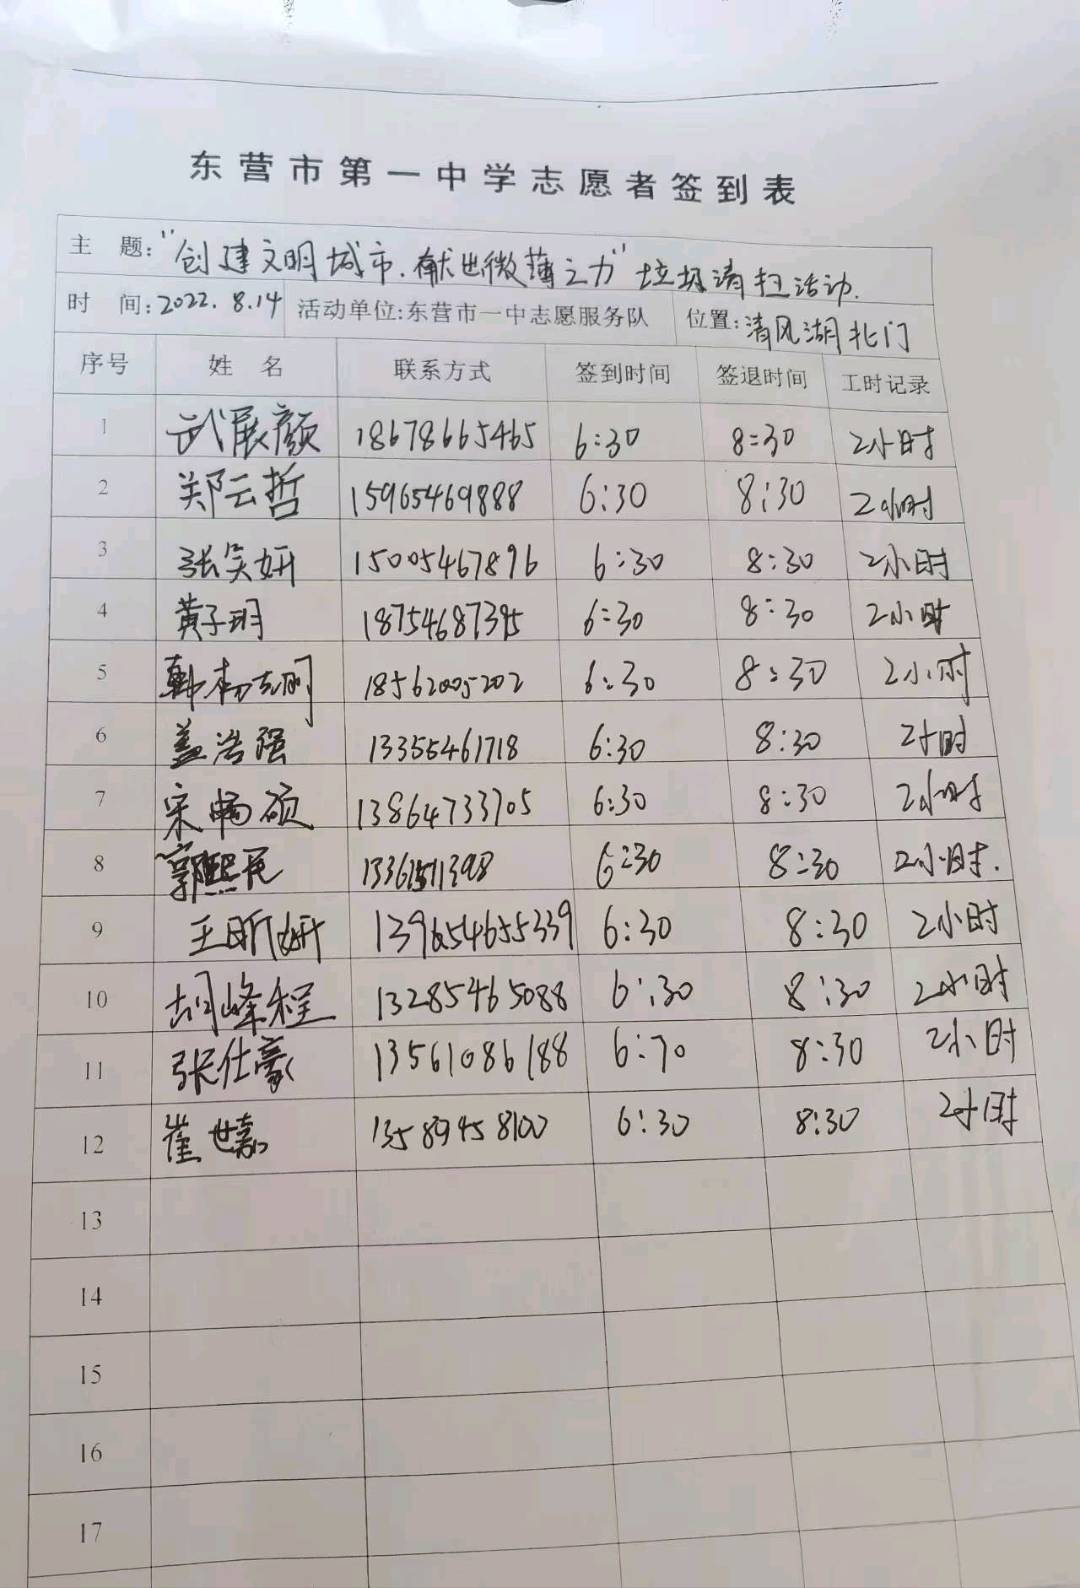 东营市第一中学志愿者签到表
主 题:“创建文明城市.献出微薄之力”垃圾清扫活动.
时 间:2022.8.14 活动单位:东营市一中志愿服务队 位置:清风湖北门
序号 姓 名 联系方式 签到时间 签退时间 工时记录
1 武展颜 18678665465 6:30 8:30 2小时
2 郑云哲 15965469888 6:30 8:30 2小时
3 张笑妍 15005467896 6:30 8:30 2小时
4 黄子玥 18754687395 6:30 8:30 2小时
5 18562005202 6:30 8:30 2小时
6 盖浩强 13355461718 6:30 8:30 2小时
7 宋畅硕 13864733705 6:30 8:30 2小时
8 郭熙民 6:30 8:30 2小时.
9 王昕妍 139654655339 6:30 8:30 2小时
10 胡峰程 13285465088 6:30 8:30 2小时
11 张仕豪 13561086188 6:70 8:30 2小时
12 崔世嘉 13589458100 6:30 8:30 2小时
13
14
15
16
17